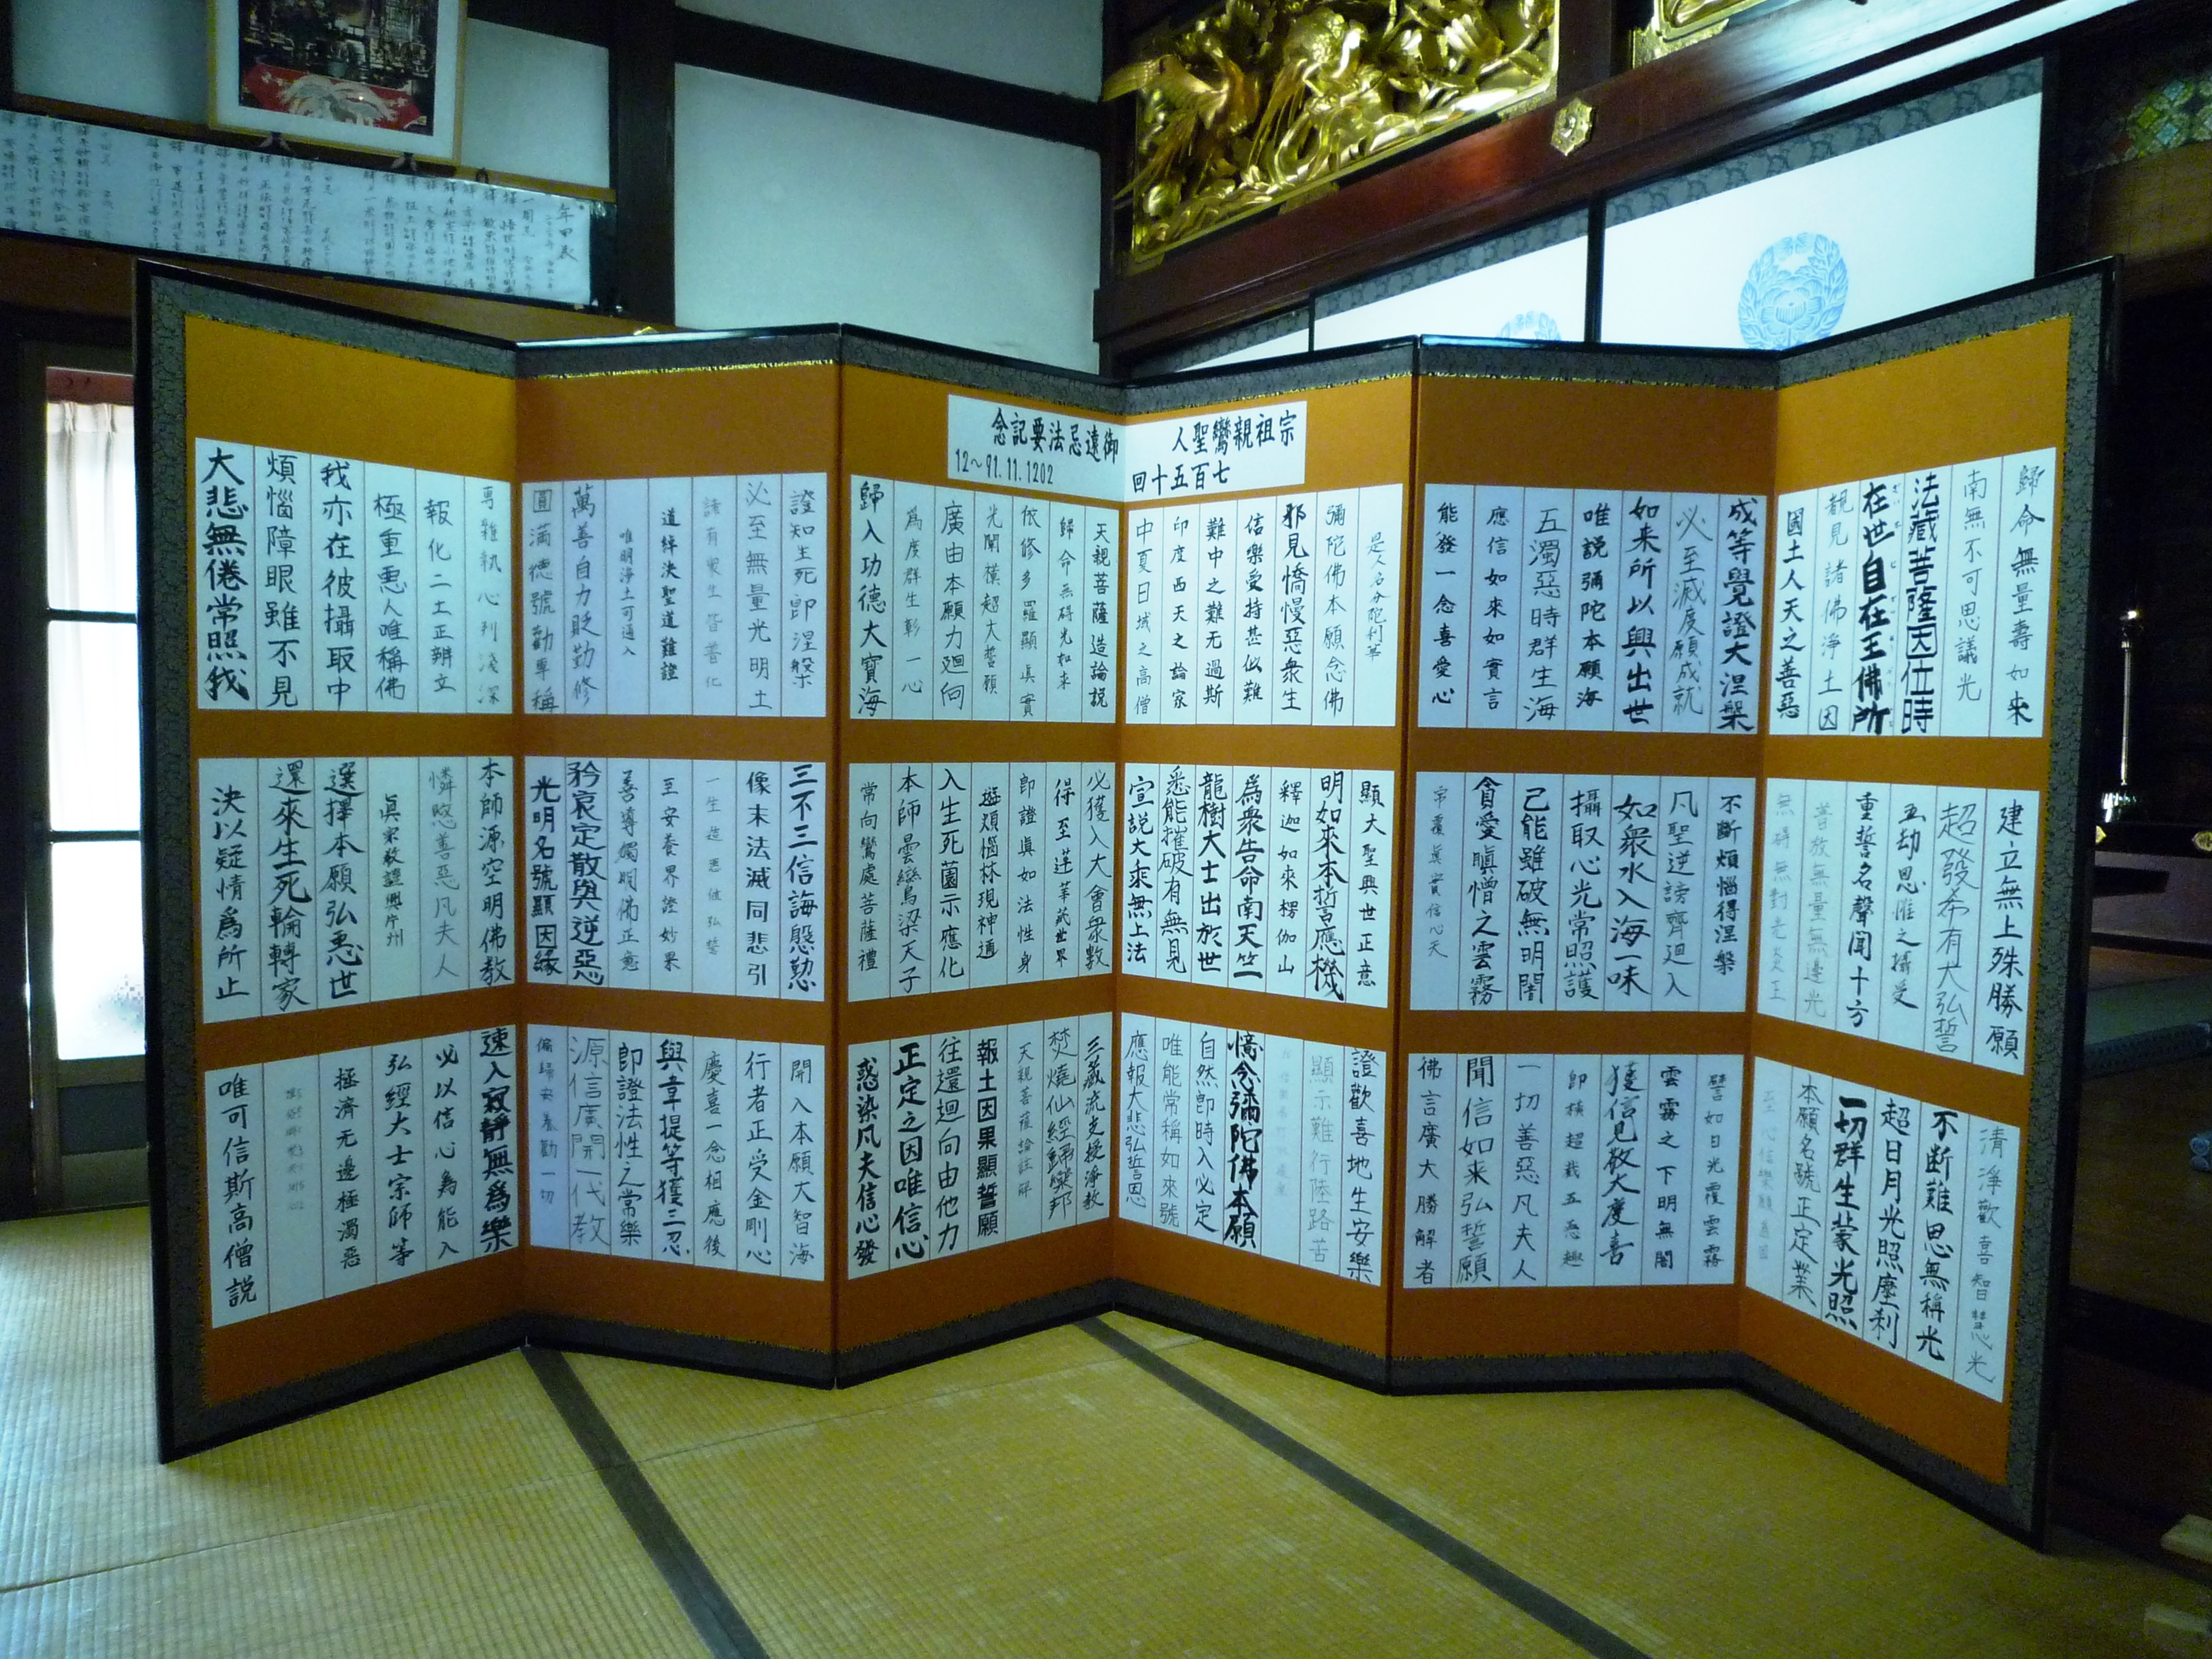 宗祖親鸞聖人
七百五十回
御遠忌法要記念
2021.11.19～21
歸命無量壽如来
南無不可思議光
法藏菩薩因位時
在世自在王佛所
覩見諸佛淨土因
國土人天之善惡
建立無上殊勝願
超發希有大弘誓
五劫思惟之攝受
重誓名聲聞十方
普放無量無邊光
無碍無對光炎王
清淨歡喜智慧光
不断難思無稱光
超日月光照塵刹
一切群生蒙光照
本願名號正定業
至心信樂願為因
成等覺證大涅槃
必至滅度願成就
如来所以興出世
唯説彌陀本願海
五濁惡時群生海
應信如來如實言
能發一念喜愛心
不斷煩惱得涅槃
凡聖逆謗齊廻入
如衆水入海一味
攝取心光常照護
已能雖破無明闇
貪愛瞋憎之雲霧
常覆眞實信心天
譬如日光覆雲霧
雲霧之下明無闇
獲信見敬大慶喜
即横超截五悪趣
一切善惡凡夫人
聞信如来弘誓願
佛言廣大勝解者
是人名分陀利華
彌陀佛本願念佛
邪見憍慢惡衆生
信樂受持甚似難
難中之難无過斯
印度西天之論家
中夏日域之高僧
顯大聖興世正意
明如來本誓應機
釋迦如來楞伽山
為衆告命南天竺
龍樹大士出於世
悉能摧破有無見
宣説大乘無上法
證歡喜地生安樂
顯示難行陸路苦
憶念彌陀佛本願
自然即時入必定
唯能常稱如來號
應報大悲弘誓恩
天親菩薩造論説
歸命無碍光如来
依修多羅顯眞實
光闡横超大誓願
廣由本願力廻向
為度群生彰一心
歸入功德大寶海
必獲入大會衆數
得至蓮華蔵世界
即證眞如法性身
遊煩惱林現神通
入生死薗示應化
本師曇鸞梁天子
常向鸞處菩薩禮
三蔵流支授淨教
焚燒仙經歸樂邦
天親菩薩論註解
報土因果顯誓願
往還廻向由他力
正定之因唯信心
惑染凡夫信心發
證知生死即涅槃
必至無量光明土
諸有衆生皆普化
道綽決聖道難證
唯明淨土可通入
萬善自力貶勤修
圓満德號勸専稱
三不三信誨慇懃
像末法滅同悲引
一生造悪値弘誓
至安養界證妙果
善導獨明佛正意
矜哀定散與逆惡
光明名號顯因縁
開入本願大智海
行者正受金剛心
慶喜一念相應後
與韋提等獲三忍
即證法性之常樂
源信廣開一代教
偏歸安養勸一切
専雜執心判淺深
報化二土正辨立
極重悪人唯稱佛
我亦在彼攝取中
煩惱障眼雖不見
大悲無倦常照我
本師源空明佛教
憐愍善惡凡夫人
眞宗教證興片州
選擇本願弘悪世
還來生死輪轉家
決以疑情爲所止
速入寂静無為樂
必以信心為能入
弘經大士宗師等
拯濟无邊極濁惡
唯可信斯高僧説